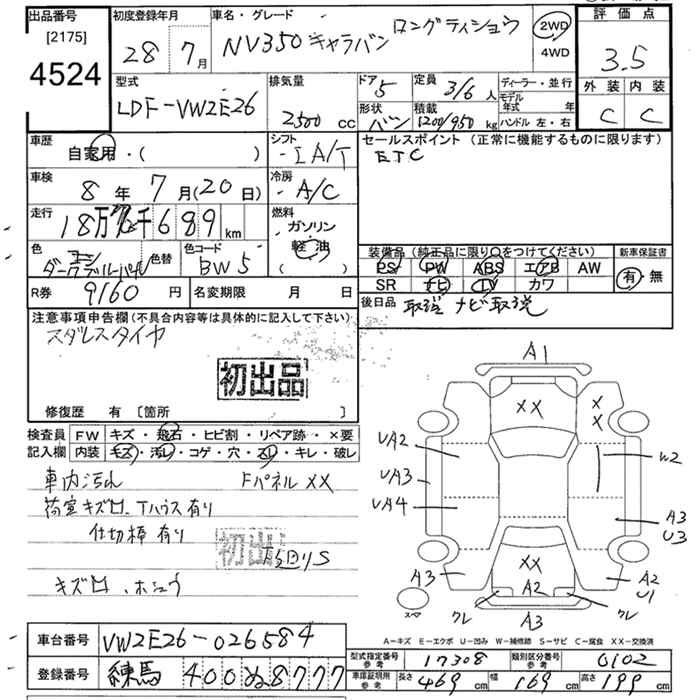 出品番号
[2175]
4524
初度登録年月
28年 7月
車名・グレード
NV350 キャラバン ロングライダー
2WD
4WD
評価点
3.5
外装 内装
C C
型式
LDF-VW2E26
排気量
2,500 cc
ドア 5
定員 3/6人
形状 バン
積載 1200/950 kg
ディーラー・並行
モデル年式 年
ハンドル 左・右
車歴
自家用・( )
シフト
IA/T
セールスポイント (正常に機能するものに限ります)
ETC
車検
8年 7月 (20日)
冷房
A/C
走行
18万 千 689 km
燃料
ガソリン
軽油
( )
色
色替
色コード
BW5
装備品 (純正品に限り○をつけてください)
新車保証書
PS PW ABS エアB AW
SR ナビ TV カワ
有・無
R券
9160円
名変期限 月 日
後日品
取説 ナビ取説
注意事項申告欄 (不具合内容等は具体的に記入して下さい)
スタッドレスタイヤ
初出品
修復歴 有 [箇所 ]
検査員記入欄
FW キズ・飛石・ヒビ割・リペア跡・×要
内装 キズ・汚レ・コゲ・穴・スレ・キレ・破レ
車内汚れ Fパネル XX
荷室キズ凹、 有り
仕切棒 有り
初出
キズ凹、ホシュウ
A1
XX
X
X
UA2
UA3
UA4
W2
A3
U3
XX
A3
A2
A2
U1
ワレ
ワレ
A3
A-キズ E-エクボ U-凹み W-補修跡 S-サビ C-腐食 XX-交換済
車台番号
VW2E26-026584
登録番号
練馬 400 ぬ 8777
型式指定番号 参考
17308
類別区分番号 参考
0102
車庫証明用 参考
長さ 469 cm 幅 169 cm 高さ 199 cm